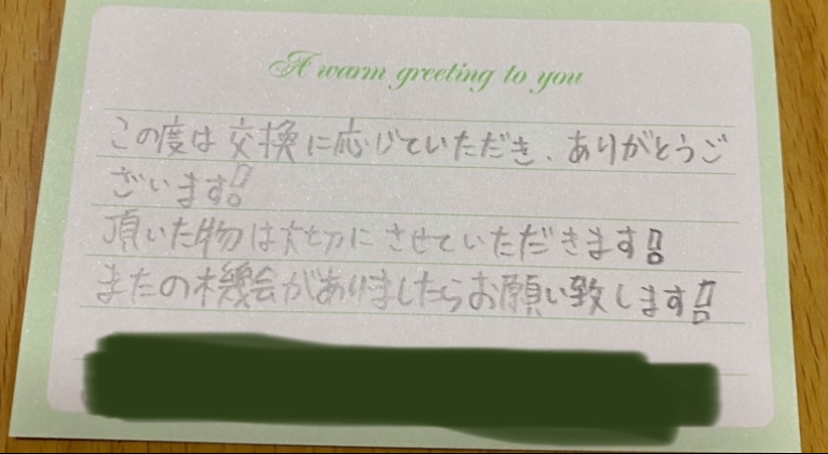 A warm greeting to you
この度は交換に応じていただき、ありがとうご
ざいます!!
頂いた物は大切にさせていただきます!!
またの機会がありましたらお願い致します!!